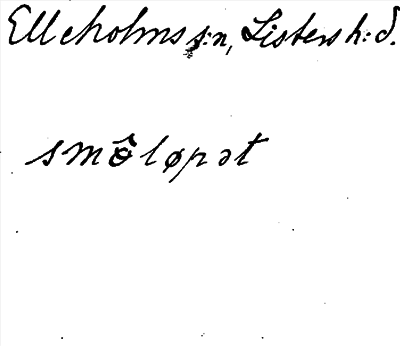 Elleholms s:n, Listers h:d.
smô̵løpət